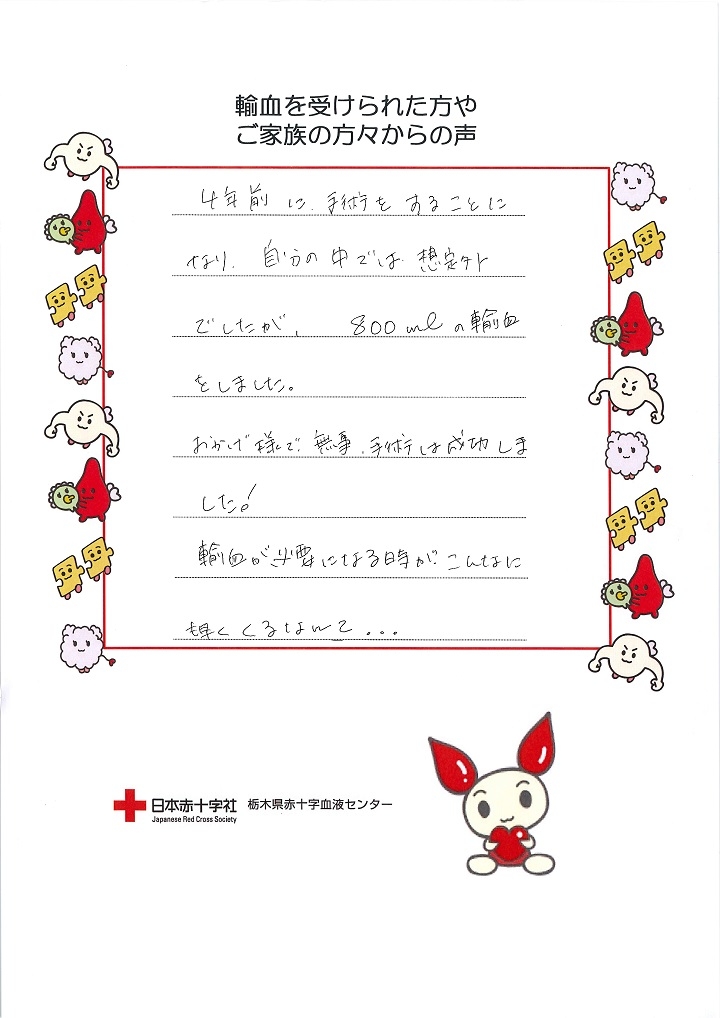 輸血を受けられた方や
ご家族の方々からの声
4年前に、手術をすることに
なり、自分の中では、想定外
でしたが、800mlの輸血
をしました。
おかげ様で、無事、手術は成功しま
した!
輸血が必要になる時が、こんなに
早くくるなんて...
日本赤十字社 栃木県赤十字血液センター
Japanese Red Cross Society